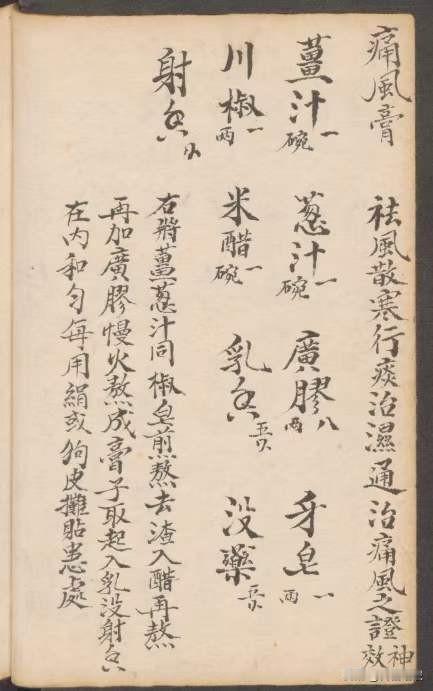 痛風膏 祛風散寒行痰治濕通治痛風之證神效
薑汁一碗 葱汁一碗 廣膠八両 牙皂一両
川椒一両 米醋一碗 乳香五 没藥
射香
右將薑葱汁同椒皂煎熬去渣入醋再熬
再加廣膠慢火熬成膏子取起入乳没射香
在内和匀每用絹或狗皮攤貼患處